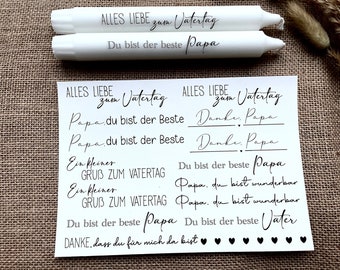 ALLES LIEBE zum Vatertag
Du bist der beste Papa
ALLES LIEBE zum Vatertag
ALLES LIEBE zum Vatertag
Papa, du bist der Beste
Danke, Papa
Papa, du bist der Beste
Danke, Papa
Ein kleiner
GRUß ZUM VATERTAG
Du bist der beste Papa
Ein kleiner
GRUß ZUM VATERTAG
Papa, du bist wunderbar
Papa, du bist wunderbar
Du bist der beste Papa
Du bist der beste Vater
DANKE, dass du für mich da bist